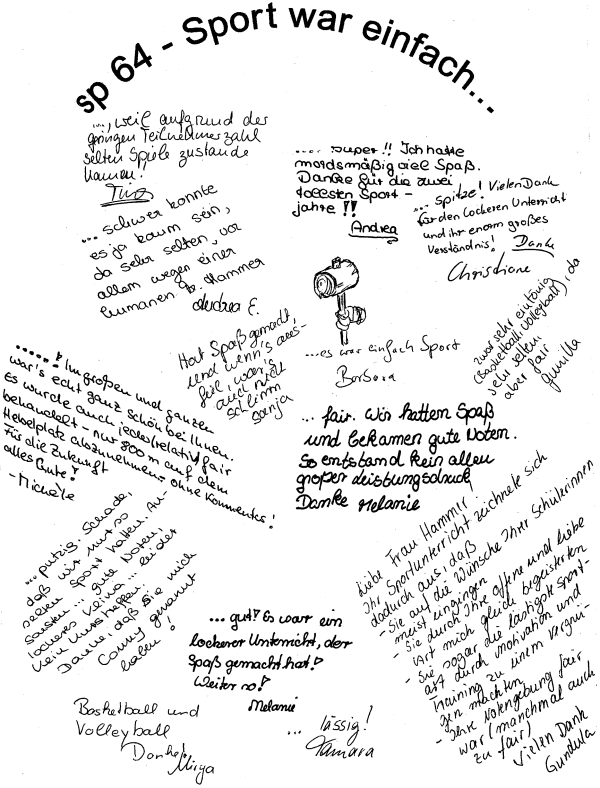 sp 64 - Sport war einfach...
..., weil aufgrund der
geringen Teilnehmerzahl
selten Spiele zustande
kamen!
Tina
.... super!! Ich hatte
mordsmäßig viel Spaß.
Danke für die zwei
tollsten Sport-
jahre!!
Andrea
... schwer konnte
es ja kaum sein,
da sehr selten, vor
allem wegen einer
humanen Fr. Hammer
Andrea E.
... Spitze! Vielen Dank
für den lockeren Unterricht
und ihr enorm großes
Verständnis! Danke
Christiane
zwar sehr eintönig
(Basketball, Volleyball), da
sehr selten,
aber fair
Gunilla
Hat Spaß gemacht,
und wenn's aus-
fiel, war's
auch nicht
schlimm
Sonja
...es war einfach Sport
Barbara
......! Im großen und ganzen
war's echt ganz schön bei Ihnen.
Es wurde auch jede(relativ) fair
behandelt - nur 800 m auf dem
Hebelplatz abzunehmen - ohne Kommentar!
Für die Zukunft
alles Gute!
- Michèle
... fair. Wir hatten Spaß
und bekamen gute Noten.
So entstand kein allzu
großer Leistungsdruck
Danke Melanie
...putzig. Schade,
daß wir nur so
selten Sport hatten. An-
sonsten ... gute Noten,
lockeres Klima ... leider
kein Kunstturnen.
Danke, daß Sie mich
Conny genannt
haben!
Liebe Frau Hammer!
Ihr Sportunterricht zeichnete sich
dadurch aus, daß
- Sie auf die Wünsche Ihrer Schülerinnen
meist eingingen
- Sie durch Ihre offene und liebe
Art mich gleich begeisterten
- Sie sogar die lästigste Sport-
art durch Motivation und
Training zu einem Vergnü-
gen machten
- Ihre Notengebung fair
war (manchmal auch
zu fair)
Vielen Dank
Gundula
... gut! Es war ein
lockerer Unterricht, der
Spaß gemacht hat!
Weiter so!
Melanie
Basketball und
Volleyball
Danke!
Mirja
... lässig!
Tamara